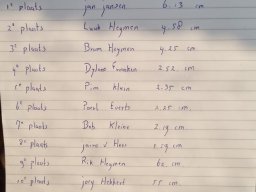 1e plaats jan jansen 6.13 cm
2e plaats Luuk Heymen 4.58 cm
3e plaats Bram Heymen 4.25 cm
4e plaats Dylano Franken 2.52 cm
5e plaats Pim Klein 2.35 cm
6e plaats Paul Everts 2.25 cm
7e plaats Bob Kleine 2.19 cm
8e plaats 1.29 cm
9e plaats Rik Heymen 62 cm
10e plaats jory Hekkert 55 cm